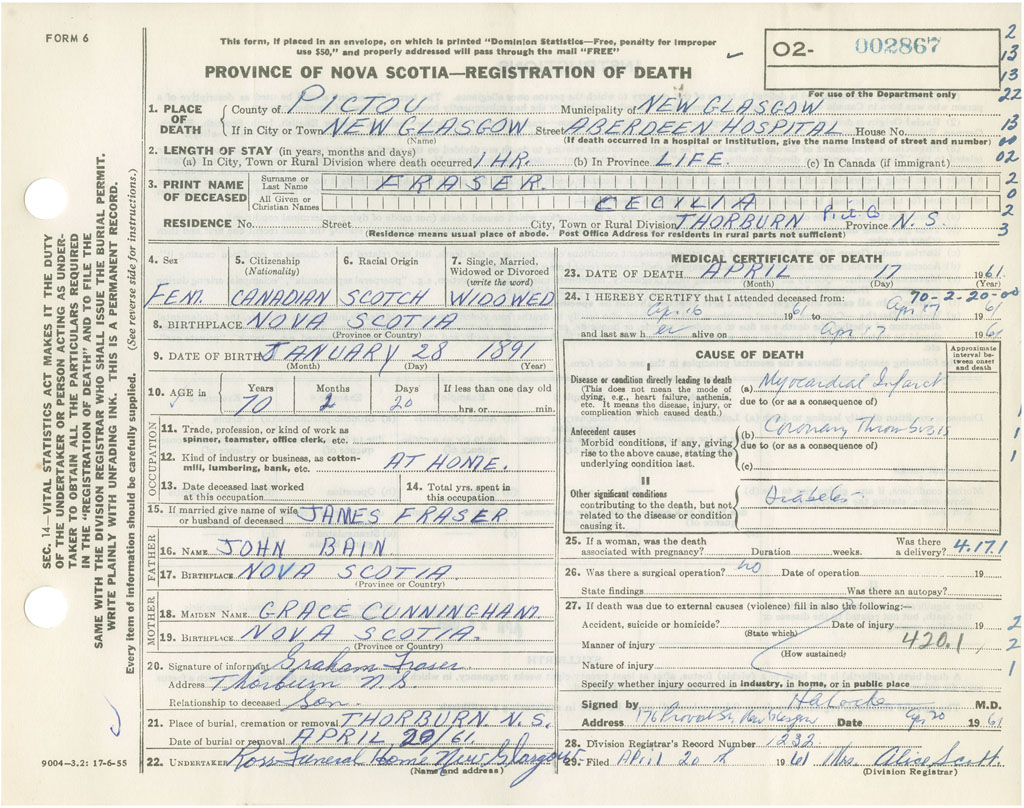 FORM 6
This form, if placed in an envelope, on which is printed "Dominion Statistics—Free, penalty for improper
use $50," and properly addressed will pass through the mail "FREE"
PROVINCE OF NOVA SCOTIA—REGISTRATION OF DEATH
02- 002867
For use of the Department only
2
13
13
22
13
00
02
2
0
2
3
1. PLACE OF DEATH
County of PICTOU Municipality of NEW GLASGOW
If in City or Town NEW GLASGOW Street ABERDEEN HOSPITAL House No.
(Name) (If death occurred in a hospital or institution, give the name instead of street and number)
2. LENGTH OF STAY (in years, months and days)
(a) In City, Town or Rural Division where death occurred 1 HR. (b) In Province LIFE. (c) In Canada (if immigrant)
3. PRINT NAME OF DECEASED
Surname or Last Name FRASER.
All Given or Christian Names CECILIA
RESIDENCE No. Street City, Town or Rural Division THORBURN Pict Co Province N.S.
(Residence means usual place of abode. Post Office Address for residents in rural parts not sufficient)
4. Sex FEM.
5. Citizenship (Nationality) CANADIAN
6. Racial Origin SCOTCH
7. Single, Married, Widowed or Divorced (write the word) WIDOWED
8. BIRTHPLACE NOVA SCOTIA
(Province or Country)
9. DATE OF BIRTH JANUARY 28 1891
(Month) (Day) (Year)
10. AGE in Years 70 Months 2 Days 20 If less than one day old hrs. or min.
OCCUPATION
11. Trade, profession, or kind of work as
spinner, teamster, office clerk, etc.
12. Kind of industry or business, as cotton-
mill, lumbering, bank, etc. AT HOME.
13. Date deceased last worked
at this occupation
14. Total yrs. spent in
this occupation
15. If married give name of wife
or husband of deceased JAMES FRASER
FATHER
16. NAME JOHN BAIN
17. BIRTHPLACE NOVA SCOTIA
(Province or Country)
MOTHER
18. MAIDEN NAME GRACE CUNNINGHAM.
19. BIRTHPLACE NOVA SCOTIA.
(Province or Country)
20. Signature of informant Graham Fraser
Address Thorburn N.S.
Relationship to deceased Son.
21. Place of burial, cremation or removal THORBURN. N.S.
Date of burial or removal APRIL 20/61.
22. UNDERTAKER Ross Funeral Home New Glasgow
(Name and address)
MEDICAL CERTIFICATE OF DEATH
23. DATE OF DEATH APRIL 17 1961
(Month) (Day) (Year)
70-2-20-00
24. I HEREBY CERTIFY that I attended deceased from:
Apr 16 1961 to Apr 17 1961
and last saw h er alive on Apr 17 1961
CAUSE OF DEATH
Approximate interval between onset and death
I
Disease or condition directly leading to death
(This does not mean the mode of
dying, e.g., heart failure, asthenia,
etc. It means the disease, injury, or
complication which caused death.)
(a) Myocardial Infarct
due to (or as a consequence of)
Antecedent causes
Morbid conditions, if any, giving
rise to the above cause, stating the
underlying condition last.
(b) Coronary Thrombosis
due to (or as a consequence of)
(c)
II
Other significant conditions
contributing to the death, but not
related to the disease or condition
causing it.
Diabetes
1
1
1
25. If a woman, was the death
associated with pregnancy? Duration weeks. Was there
a delivery? 4.17.1
26. Was there a surgical operation? no Date of operation 19
State findings Was there an autopsy?
27. If death was due to external causes (violence) fill in also the following:—
Accident, suicide or homicide? Date of injury 19
(State which)
Manner of injury 420.1
(How sustained)
Nature of injury
2
2
1
Specify whether injury occurred in industry, in home, or in public place
Signed by M.D.
Address 176 Provost St, New Glasgow Date Apr 20 1961
28. Division Registrar's Record Number 1232
29. Filed April 20th 1961 Mrs. Alice Scott.
(Division Registrar)
SEC. 14—VITAL STATISTICS ACT MAKES IT THE DUTY
OF THE UNDERTAKER OR PERSON ACTING AS UNDER-
TAKER TO OBTAIN ALL THE PARTICULARS REQUIRED
IN THE "REGISTRATION OF DEATH" AND TO FILE THE
SAME WITH THE DIVISION REGISTRAR WHO SHALL ISSUE THE BURIAL PERMIT.
WRITE PLAINLY WITH UNFADING INK. THIS IS A PERMANENT RECORD.
Every item of information should be carefully supplied. (See reverse side for instructions.)
9004—3.2: 17-6-55